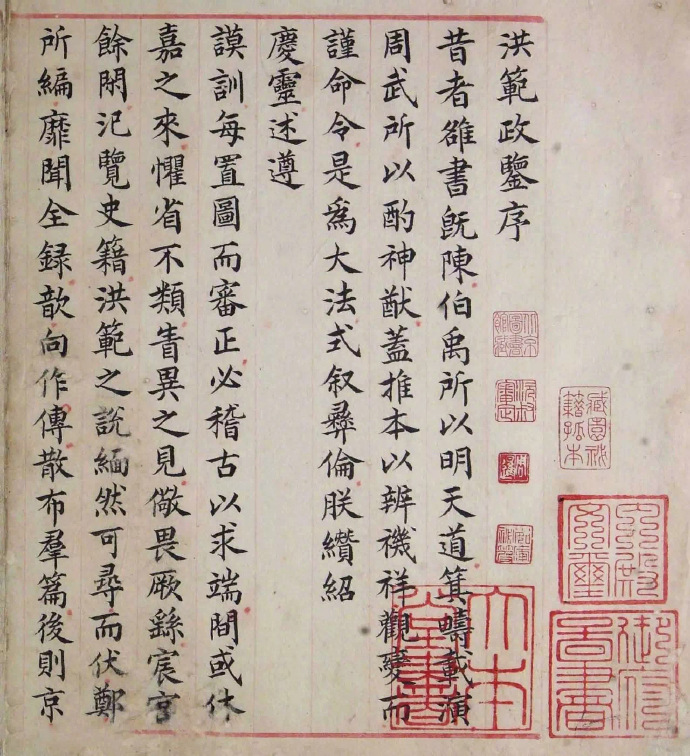 洪範政鑒序
昔者雒書既陳伯禹所以明天道箕疇載演
周武所以酌神猷蓋推本以辨禨祥觀變而
謹命令是為大法式叙彝倫朕纘紹
慶靈述遵
謨訓每置圖而審正必稽古以求端間或休
嘉之來懼省不類眚異之見儆畏厥繇宸宮
餘閑汜覽史籍洪範之說緬然可尋而伏鄭
所編靡聞全録歆向作傳散布羣篇後則京